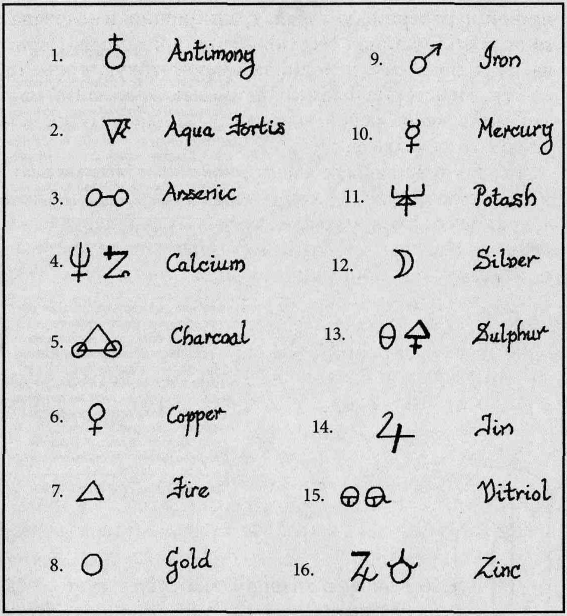 1. Antimony
2. Aqua Fortis
3. Arsenic
4. Calcium
5. Charcoal
6. Copper
7. Fire
8. Gold
9. Iron
10. Mercury
11. Potash
12. Silver
13. Sulphur
14. Tin
15. Vitriol
16. Zinc